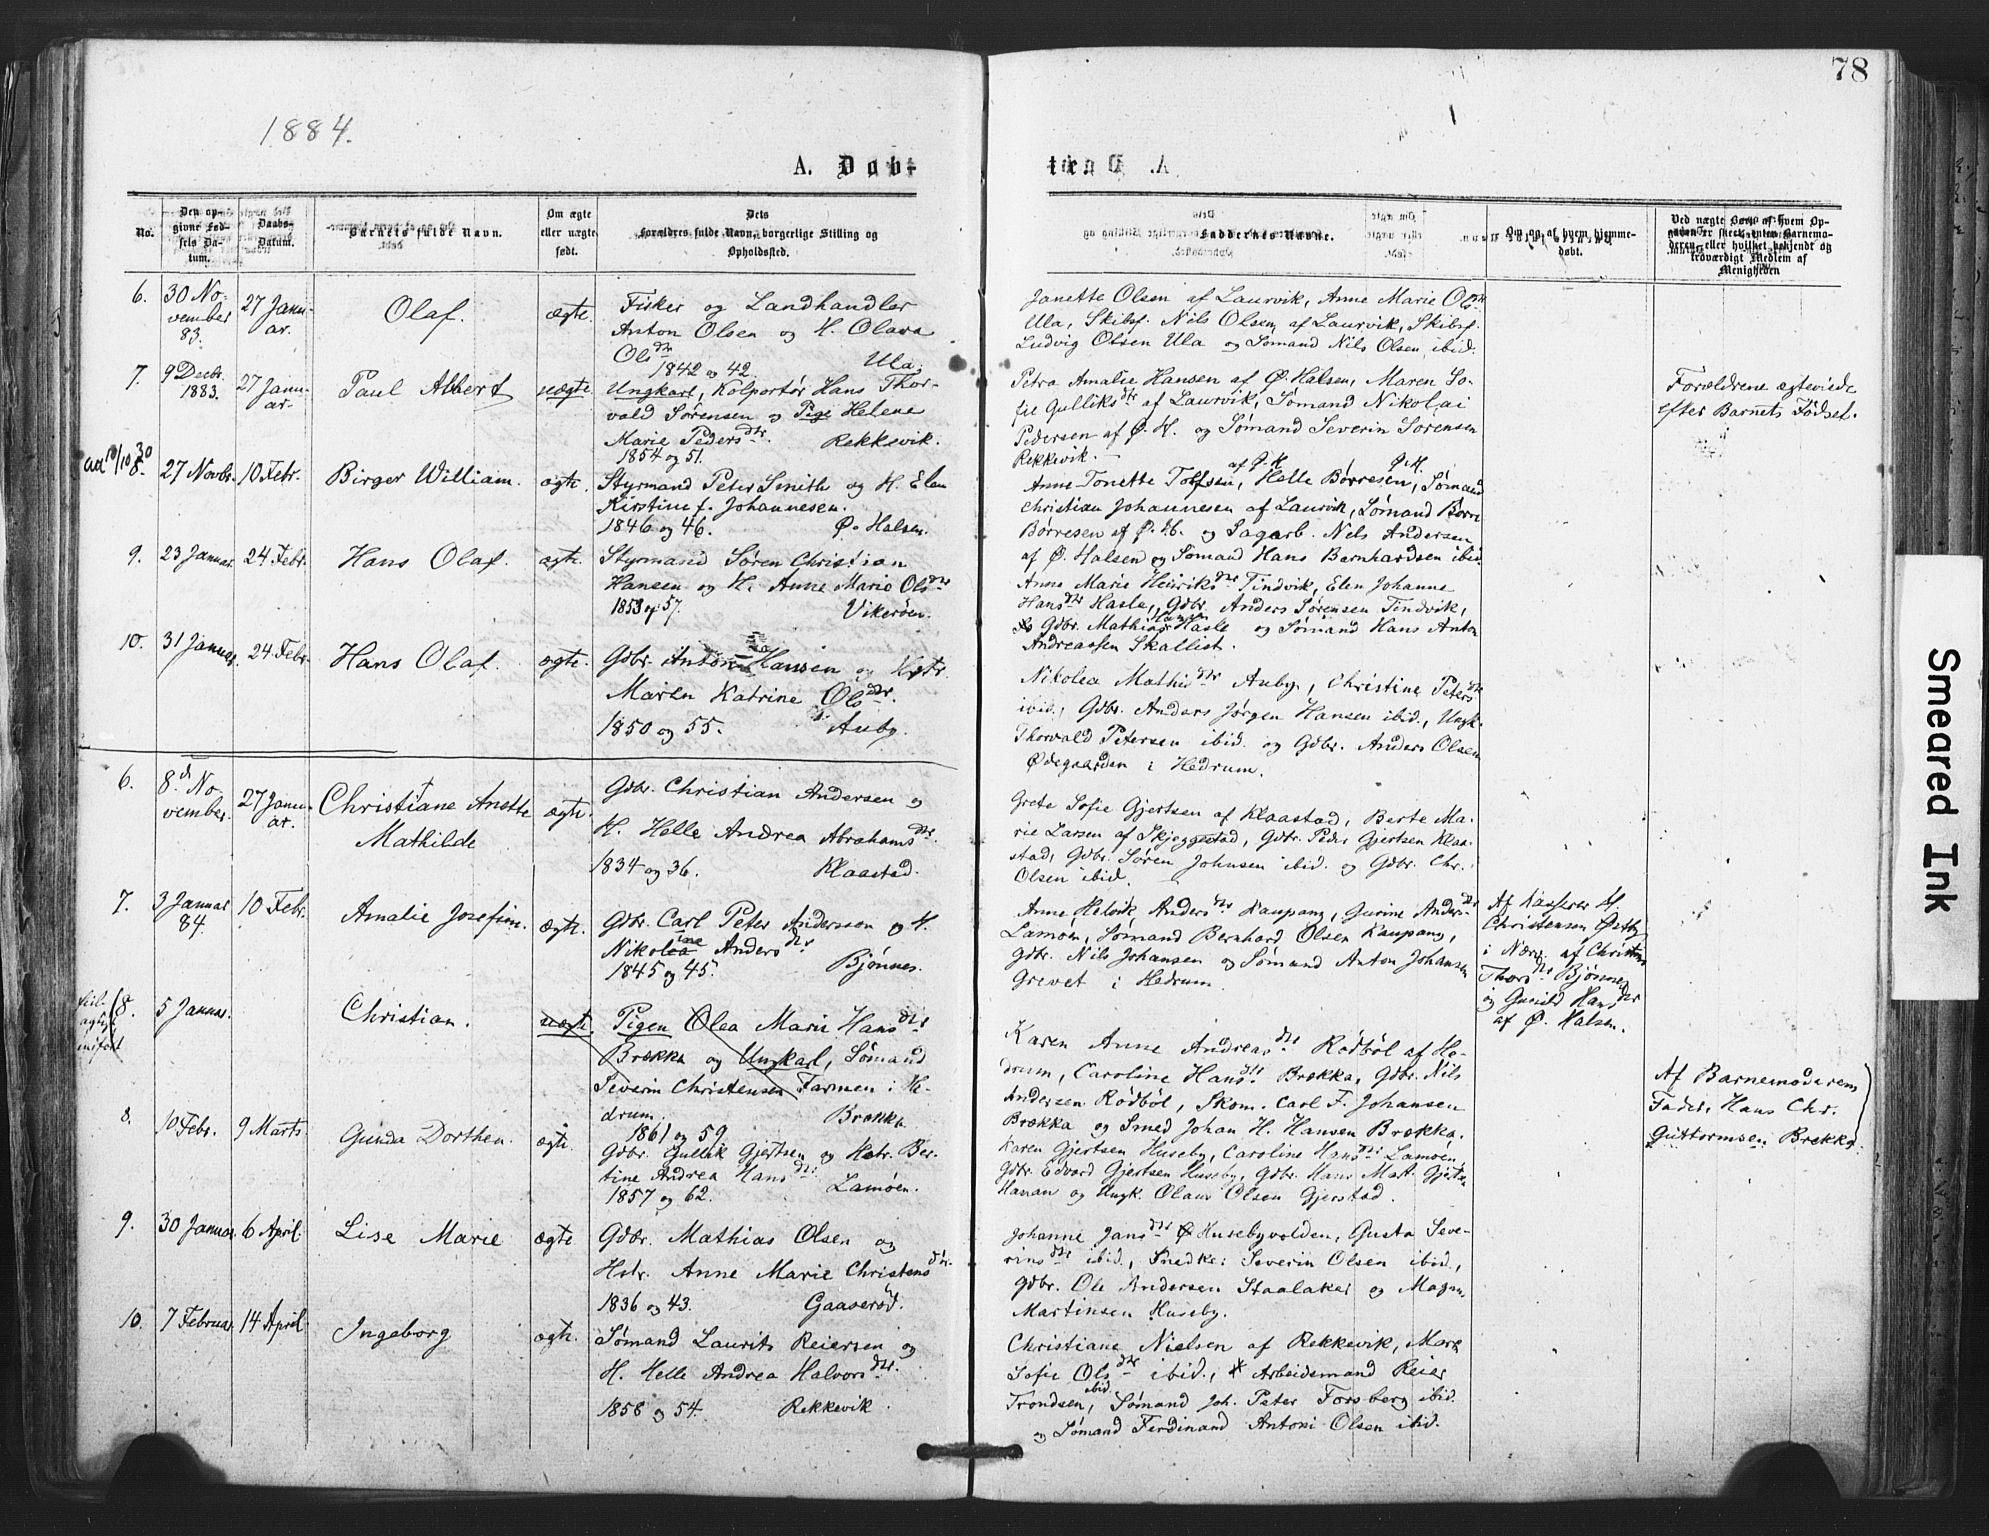 78
1884.
A. Døbt
No.
Den opgivne Fødsels Datum.
Daabs-Datum.
Barnets fulde Navn.
Om ægte eller uægte født.
Dets Forældres fulde Navn, borgerlige Stilling og Opholdssted.
Faddernes Navne.
Om og af hvem hjemmedøbt.
6.
30 November 83.
27 Januar.
Olaf.
ægte.
Fisker og Landhandler
Anton Olsen og H. Olava
Olsdtr
1842 og 42. Ula.
Janette Olsen af Laurvik, Anne Marie Olsdtr
Ula, Skibsf. Nils Olsen af Laurvik, Skibsf.
Ludvig Olsen Ula og Sømand Nils Olsen ibid.
7.
9 Decbr. 1883.
27 Januar.
Paul Albert
uægte
Ungkarl, Kolportør Hans Thor-
vald Sørensen og Pige Helene
Marie Pedersdtr Rekkevik.
1854 og 51.
Petra Amalie Hansen af Ø. Halsen, Maren So-
fie Gulliksdtr af Laurvik, Sømand Nikolai
Pedersen af Ø. H. og Sømand Severin Sørensen
Rekkevik.
Forældrene ægteviede
efter Barnets Fødsel.
8.
27 Novbr.
10 Febr.
Birger William.
ægte.
Styrmand Peter Smith og H. Elen
Kirstine f. Johannesen.
1846 og 46. Ø. Halsen.
Anne Tonette Tolfsen, Helle Børresen, Sømand
Christian Johannesen af Laurvik, Sømand Børre
Børresen af Ø. H. og Sagarb. Nels Andersen
af Ø. Halsen og Sømand Hans Bernhardsen ibid.
9.
23 Januar.
24 Febr.
Hans Olaf.
ægte.
Styrmand Søren Christian
Hansen og H. Anne Marie Olsdtr
1853 og 57. Vikerøen.
Anne Marie Henriksdtr Tindvik, Elen Johanne
Hansdtr Hasle, Gdbr. Anders Sørensen Tindvik,
Gdbr. Mathias Hansen Hasle og Sømand Hans Anton
Andreassen Skallist.
10.
31 Januar.
24 Febr.
Hans Olaf.
ægte.
Gdbr. Anton Hansen og Hstr.
Maren Katrine Olsdtr.
1850 og 55. Auby.
Nikolea Mathisdtr Auby, Christine Petersdtr
ibid., Gdbr. Anders Jørgen Hansen ibid., Ungk.
Thorvald Petersen ibid. og Gdbr. Anders Olsen
Ødegaarden i Hedrum.
6.
8d November.
27 Januar.
Christiane Anette
Mathilde
ægte.
Gdbr. Christian Andersen og
H. Helle Andrea Abrahamsdtr.
1834 og 36. Klaastad.
Grete Sofie Gjertsen af Klaastad, Berte Ma-
rie Larsen af Skjeggestad, Gdbr. Peder Gjertsen Klaa-
stad, Gdbr. Søren Johnsen ibid. og Gdbr. Chr.
Olsen ibid.
7.
3 Januar 84.
10 Febr.
Amalie Josefine.
ægte.
Gdbr. Carl Peter Andersson og H.
Nikoline Andersdtr
1845 og 45. Bjønnes.
Anne Helvik Andersdtr Kaupang, Gurine Andersdtr
Lamøen, Sømand Bernhard Olsen Kaupang,
Gdbr. Nils Johansen og Sømand Anton Johansen
Grevet i Hedrum.
Af Kasserer H.
Christensen Østby
i Nærv. af Christine
Thorsdtr Bjønnes
og Gunild Hansdtr
af Ø. Halsen.
8.
5 Januar.
Christian.
uægte.
Pigen Olea Marie Hansdtr
Brækka og Ungkarl, Sømand
Severin Christensen Farmen i He-
drum. Brækka.
1861 og 59.
Karen Anne Andreasdtr Rødbøl af He-
drum, Caroline Hansdtr. Brækka, Gdbr. Nils
Andersen Rødbøl, Skom. Carl F. Johansen
Brækka og Smed Johan H. Hansen Brækka.
Af Barnemoderens
Fader, Hans Chr.
Guttormsen Brække.
8.
10 Febr.
9 Marts
Gunda Dorthea.
ægte.
Gdbr. Gullik Gjertsen og Hstr. Ber-
tine Andrea Hansdtr.
1857 og 62. Lamøen.
Karen Gjertsen Huseby, Caroline Hansdtr Lamøen,
Gdbr. Edvard Gjertsen Huseby, Gdbr. Hans Mat. Gjertsen
Hanan og Ungk. Olaus Olsen Gjerstad.
9.
30 Januar.
6 April.
Lise Marie
ægte
Gdbr. Mathias Olsen og
Hstr. Anne Marie Christensdtr.
1836 og 43. Gaaserød.
Johanne Jansdtr Husebyvolden, Gusta Seve-
rinsdtr ibid., Snedker Severin Olsen ibid.,
Gdbr. Ole Andersen Staalaker og Magn.
Martinsen Huseby.
10.
7 Februar.
14 April
Ingeborg
ægte.
Sømand Laurits Reiersen og
H. Helle Andrea Halvorsdtr.
1858 og 54. Rekkevik.
Christiane Nielsen af Rekkevik, Maren
Sofie Olsdtr ibid., Arbeidsmand Reier
Trondsen ibid., Sømand Joh. Peter Forsberg ibid.
og Sømand Ferdinand Antoni Olsen ibid.
Smeared Ink